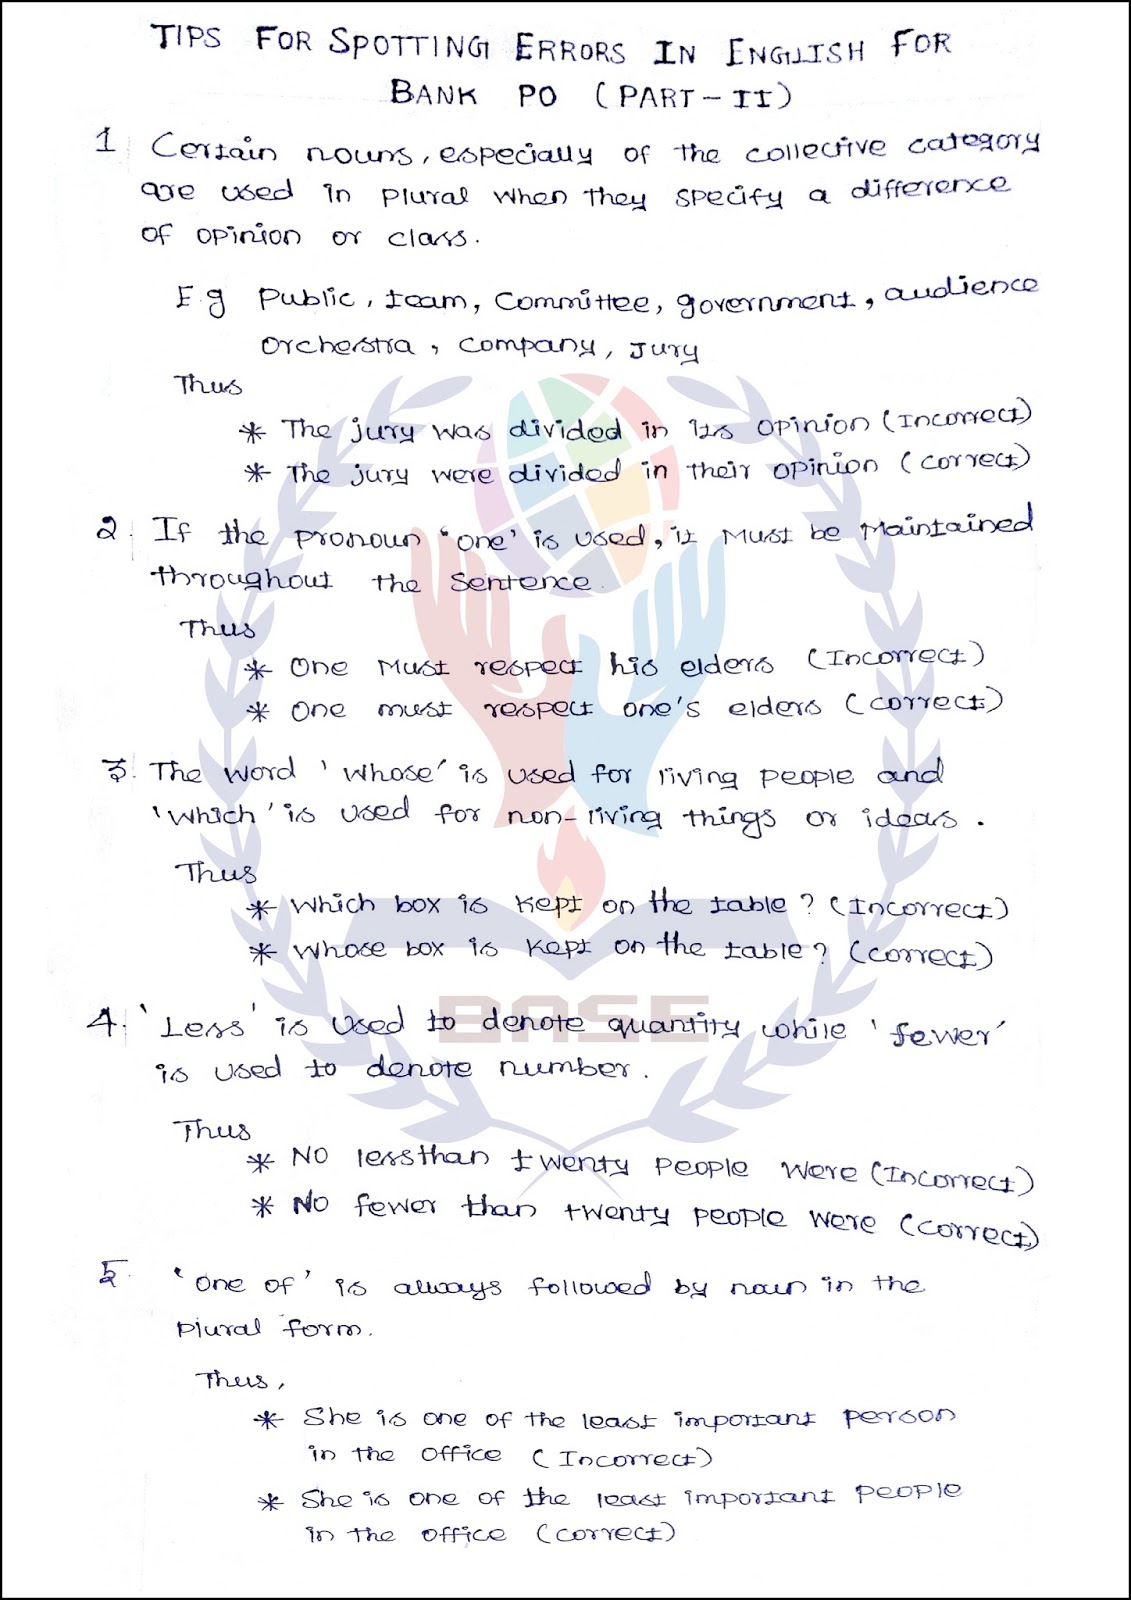 TIPS FOR SPOTTING ERRORS IN ENGLISH FOR
BANK PO (PART-II)
1 Certain nouns, especially of the collective category
are used in plural when they specify a difference
of opinion or class.
E.g Public, team, committee, government, audience
orchestra, company, jury
Thus
* The jury was divided in its opinion (Incorrect)
* The jury were divided in their opinion (correct)
2. If the pronoun "one' is used, it must be Maintained
throughout the sentence.
Thus
* One must respect his elders (Incorrect)
* One must respect one's elders (correct)
3. The word 'whose' is used for living people and
'which' is used for non-living things or ideas.
Thus
* Which box is kept on the table? (Incorrect)
* Whose box is kept on the table? (correct)
BASE
4. 'Less' is used to denote quantity while 'fewer'
is used to denote number.
Thus
* No less than twenty people were (Incorrect)
* No fewer than twenty people were (correct)
5. 'one of' is always followed by noun in the
plural form.
Thus,
* She is one of the least important person
in the office (Incorrect)
* She is one of the least important people
in the office (correct)